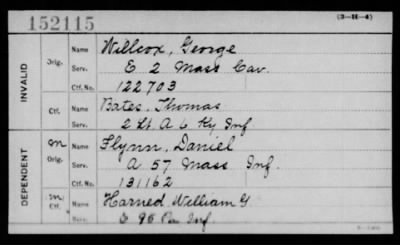 152115
(3-H-4)
INVALID
Orig.
Name Willcox, George
Serv. E 2 Mass Cav.
Ctf. No. 122703
Ctf.
Name Bates, Thomas
Serv. 2 Lt. A 6 Ky Inf
DEPENDENT
m Orig.
Name Flynn, Daniel
Serv. A 57 Mass Inf.
Ctf. No. 131162
m Ctf.
Name Harned William G
Serv. 98 Pa Inf.